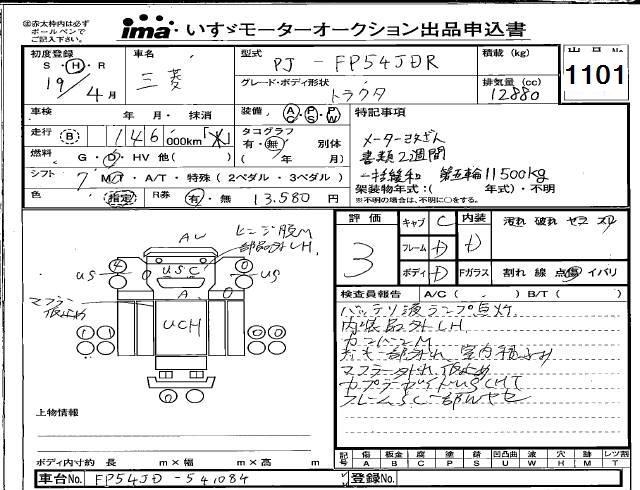 ※赤太枠内は必ずボールペンでご記入下さい。
ima いすゞモーターオークション出品申込書
初度登録 S・H・R 19/4月
車名 三菱
型式 PJ - FP54JDR
積載 (kg)
出品No. 1101
グレード・ボディ形状 トラクタ
排気量 (cc) 12880
車検 年 月・抹消
装備 AC PS PW
特記事項
走行 B 146,000km
タコグラフ 有・無 別体 ( 年 月)
メーター改ざん
書類2週間
一括緩和 第五輪11500kg
燃料 G・D・HV 他( )
シフト 7 MT・A/T・特殊(2ペダル・3ペダル)
架装物年式:( 年式)・不明
※不明の場合は、不明に○をする。
色 指定 R券 有・無 13,580円
評価 3
キャブ C
フレーム D
ボディ D
内装 D
Fガラス
汚れ 破れ
割れ 線 点傷 イバリ
検査員報告 A/C ( ) B/T ( )
バッテリ液ランプ点灯
内装品外レH.
カンバンM
室内積込み
マフラー外れ仮止め
カプラーガイドUSCHT
フレームSC一部Wヤセ
AU
一部品外レH.
4 0 USC 0 4
US US
A
マフラー仮止め
UCH
1 1 0 0
0 0
上物情報
ボディ内寸約 長 m×幅 m×高 m
記号 傷A 板金B 腐C 塗P 錆S 凹凸曲U 波W 穴H 跡M レツ割T
車台No. FP54JD-541084
登録No.